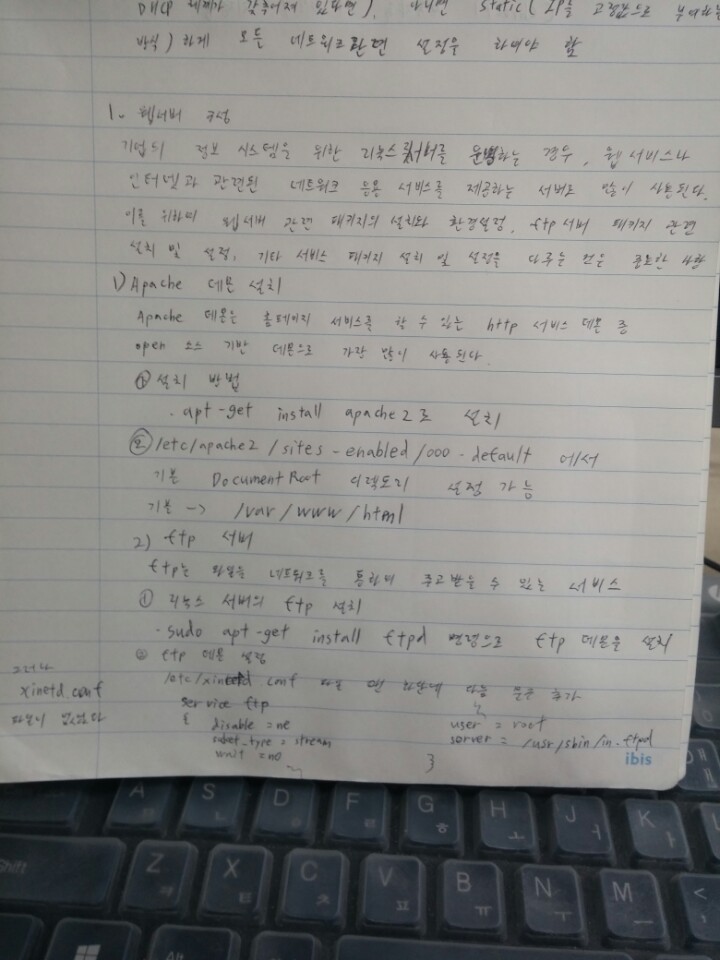 DHCP 체제가 갖추어져 있다면), 아니면 static(IP를 고정값으로 부여하는
방식)하게 모든 네트워크관련 설정을 하여야 함
1. 웹서버 구성
기업의 정보 시스템을 위한 리눅스 서버를 운영하는 경우, 웹 서비스나
인터넷과 관련된 네트워크 응용 서비스를 제공하는 서버로 많이 사용된다.
이를 위하여 웹서버 관련 패키지의 설치와 환경설정, ftp 서버 패키지 관련
설치 및 설정, 기타 서비스 패키지 설치 및 설정을 다루는 것은 중요한 사항
1) Apache 데몬 설치
Apache 데몬은 홈페이지 서비스를 할 수 있는 http 서비스 데몬 중
open 소스 기반 데몬으로 가장 많이 사용된다.
① 설치 방법
· apt-get install apache2로 설치
② /etc/apache2/sites-enabled/000-default 에서
기본 DocumentRoot 디렉토리 설정 가능
기본 -> /var/www/html
2) ftp 서버
ftp는 파일을 네트워크를 통하여 주고받을 수 있는 서비스
① 리눅스 서버의 ftp 설치
· sudo apt-get install ftpd 명령으로 ftp 데몬을 설치
② ftp 데몬 설정
/etc/xinetd.conf 파일 맨 하단에 다음 문구 추가
그러나
xinetd.conf
파일이 없었다
service ftp
{ disable = no
socket_type = stream
wait = no
user = root
server = /usr/sbin/in.ftpd
3
ibis
A S D F G H J K
ㅎ ㅗ ㅓ ㅏ
Shift Z X C V B N M
ㅊ ㅍ ㅠ ㅜ ㅡ
Alt